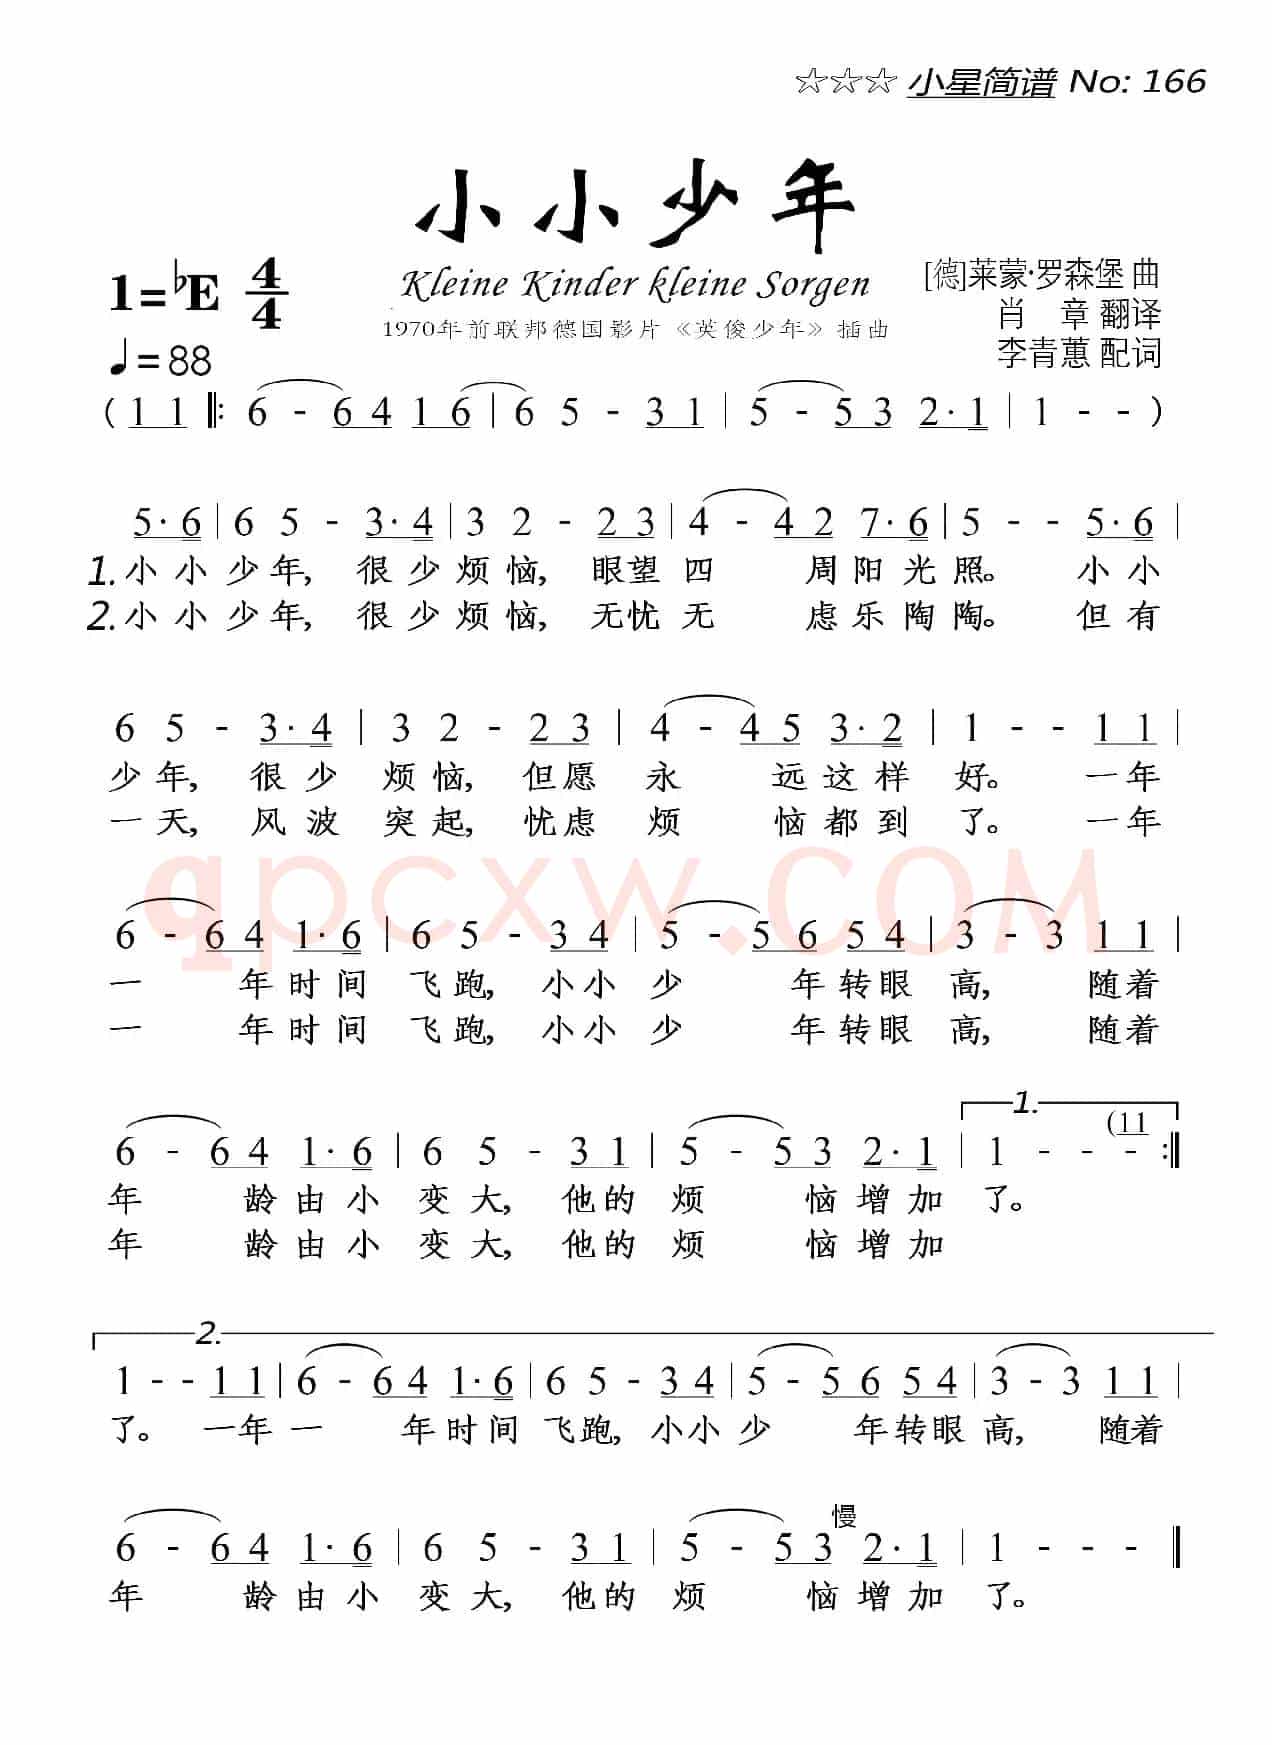 ☆☆☆ 小星简谱 No: 166
小小少年
Kleine Kinder kleine Sorgen
1970年前联邦德国影片《英俊少年》插曲
1=♭E 4/4
♩=88
[德]莱蒙·罗森堡 曲
肖 章 翻译
李青蕙 配词
( 1 1 ‖: 6 - 6 4 1 6 | 6 5 - 3 1 | 5 - 5 3 2· 1 | 1 - - )
5· 6 | 6 5 - 3· 4 | 3 2 - 2 3 | 4 - 4 2 7· 6 | 5 - - 5· 6 |
1. 小小少年, 很少烦恼, 眼望四 周阳光照。 小小
2. 小小少年, 很少烦恼, 无忧无 虑乐陶陶。 但有
6 5 - 3· 4 | 3 2 - 2 3 | 4 - 4 5 3· 2 | 1 - - 1 1 |
少年, 很少烦恼, 但愿永 远这样好。 一年
一天, 风波突起, 忧虑烦 恼都到了。 一年
6 - 6 4 1· 6 | 6 5 - 3 4 | 5 - 5 6 5 4 | 3 - 3 1 1 |
一 年时间飞跑, 小小少 年转眼高, 随着
一 年时间飞跑, 小小少 年转眼高, 随着
1.
(1 1
6 - 6 4 1· 6 | 6 5 - 3 1 | 5 - 5 3 2· 1 | 1 - - - :‖
年 龄由小变大, 他的烦 恼增加了。
年 龄由小变大, 他的烦 恼增加
2.
1 - - 1 1 | 6 - 6 4 1· 6 | 6 5 - 3 4 | 5 - 5 6 5 4 | 3 - 3 1 1 |
了。 一年一 年时间飞跑, 小小少 年转眼高, 随着
慢
6 - 6 4 1· 6 | 6 5 - 3 1 | 5 - 5 3 2· 1 | 1 - - - ‖
年 龄由小变大, 他的烦 恼增加了。
qpcxw.COM